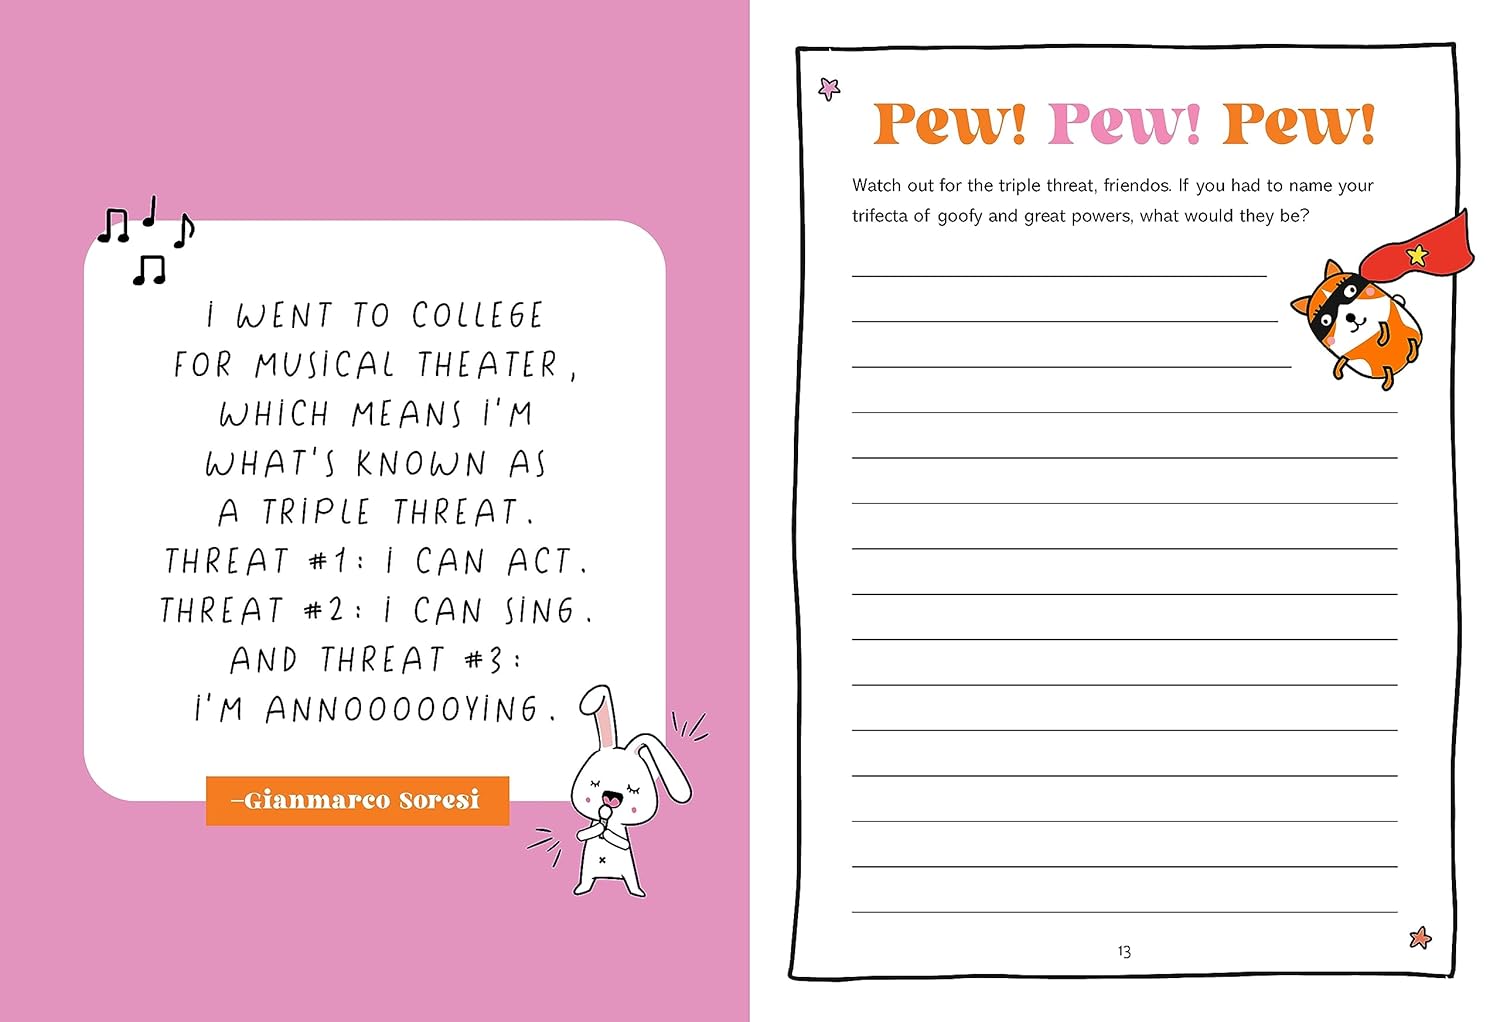 I WENT TO COLLEGE
FOR MUSICAL THEATER,
WHICH MEANS I'M
WHAT'S KNOWN AS
A TRIPLE THREAT.
THREAT #1: I CAN ACT.
THREAT #2: I CAN SING.
AND THREAT #3:
I'M ANNOOOOOYING.
–Gianmarco Soresi
Pew! Pew! Pew!
Watch out for the triple threat, friendos. If you had to name your
trifecta of goofy and great powers, what would they be?
13